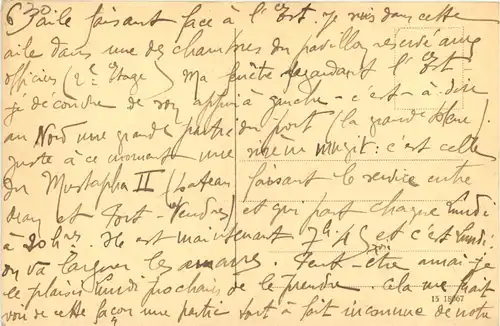 6° aile faisant face à l'Est. Je suis dans cette
aile dans une des chambres du pavillon réservé aux
officiers (2è étage) Ma fenêtre regardant l'Est
je découvre de appui à gauche - c'est-à-dire
au Nord une grande partie du port (la grande
juste à ce moment une sirène mugit : c'est celle
du Mustapha II (bateau faisant le service entre
Oran et Port-Vendres) et qui part chaque lundi
à 20hes. Il est maintenant 7h et c'est lundi
on va larguer les amarres. Peut-être aurai-je
le plaisir lundi prochain de le prendre. Cela me fait
voir de cette façon une partie tout à fait inconnue de notre
15 18567